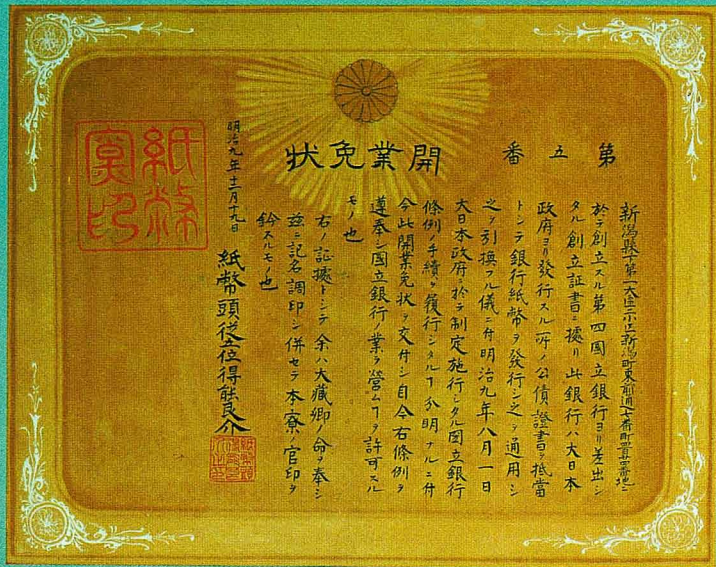 第五番
開業免状
新潟縣下第一大區小一區新潟町東前通七番町四百廿四番地ニ
於テ創立スル第四國立銀行ヨリ差出シ
タル創立証書ニ據リ此銀行ハ大日本
政府ヨリ發行スル所ノ公債證書ヲ抵當
トシテ銀行紙幣ヲ發行シ之ヲ通用シ
之ヲ引換フル儀ニ付明治九年八月一日
大日本政府ニ於テ制定施行シタル國立銀行
條例ノ手續ヲ履行シタルヿ分明ナルニ付
今此開業免状ヲ交付シ自今右條例ヲ
遵奉シ國立銀行ノ業ヲ營ムヿヲ許可スル
モノ也
右ノ証據トシテ余ハ大藏卿ノ命ヲ奉シ
茲ニ記名調印シ併セテ本寮ノ官印ヲ
鈐スルモノ也
明治九年十二月十九日
紙幣頭従五位得能良介
紙幣寮印